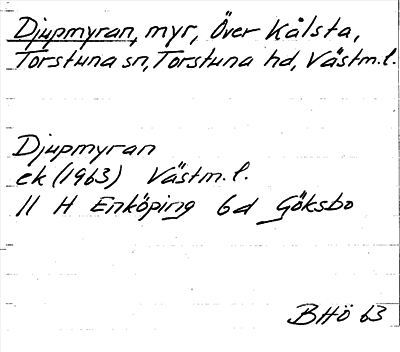 Djupmyran, myr, Över Kålsta,
Torstuna sn, Torstuna hd, Västm.l.
Djupmyran
ek (1963) Västm.l.
11 H Enköping 6d Göksbo
BHÖ 63